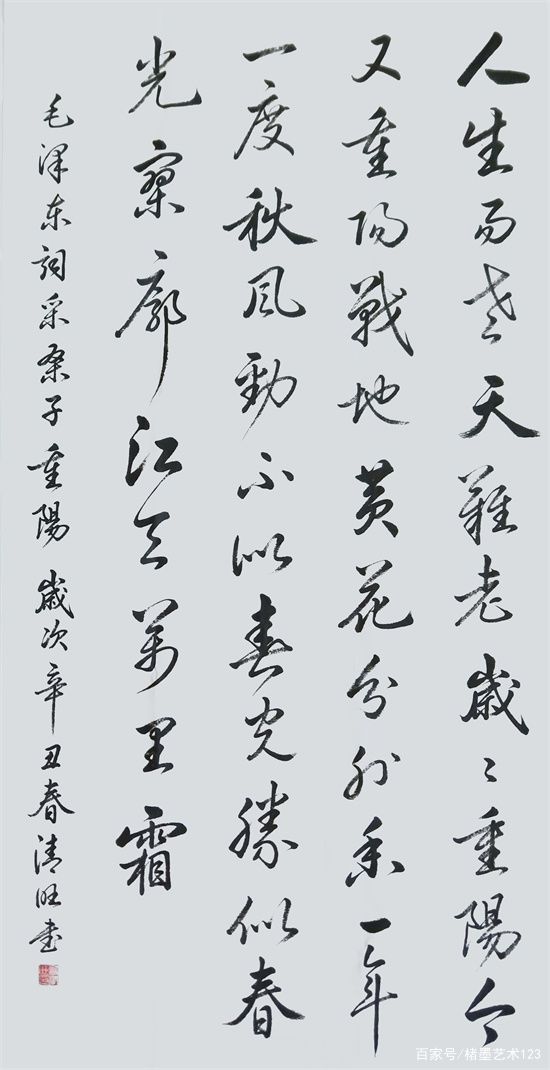 人生易老天難老歲々重陽今
又重陽戰地黃花分外香一年
一度秋風勁不似春光勝似春
光寥廓江天萬里霜
毛澤东詞采桑子重陽 歲次辛丑春清旺书
百家号/楮墨艺术123